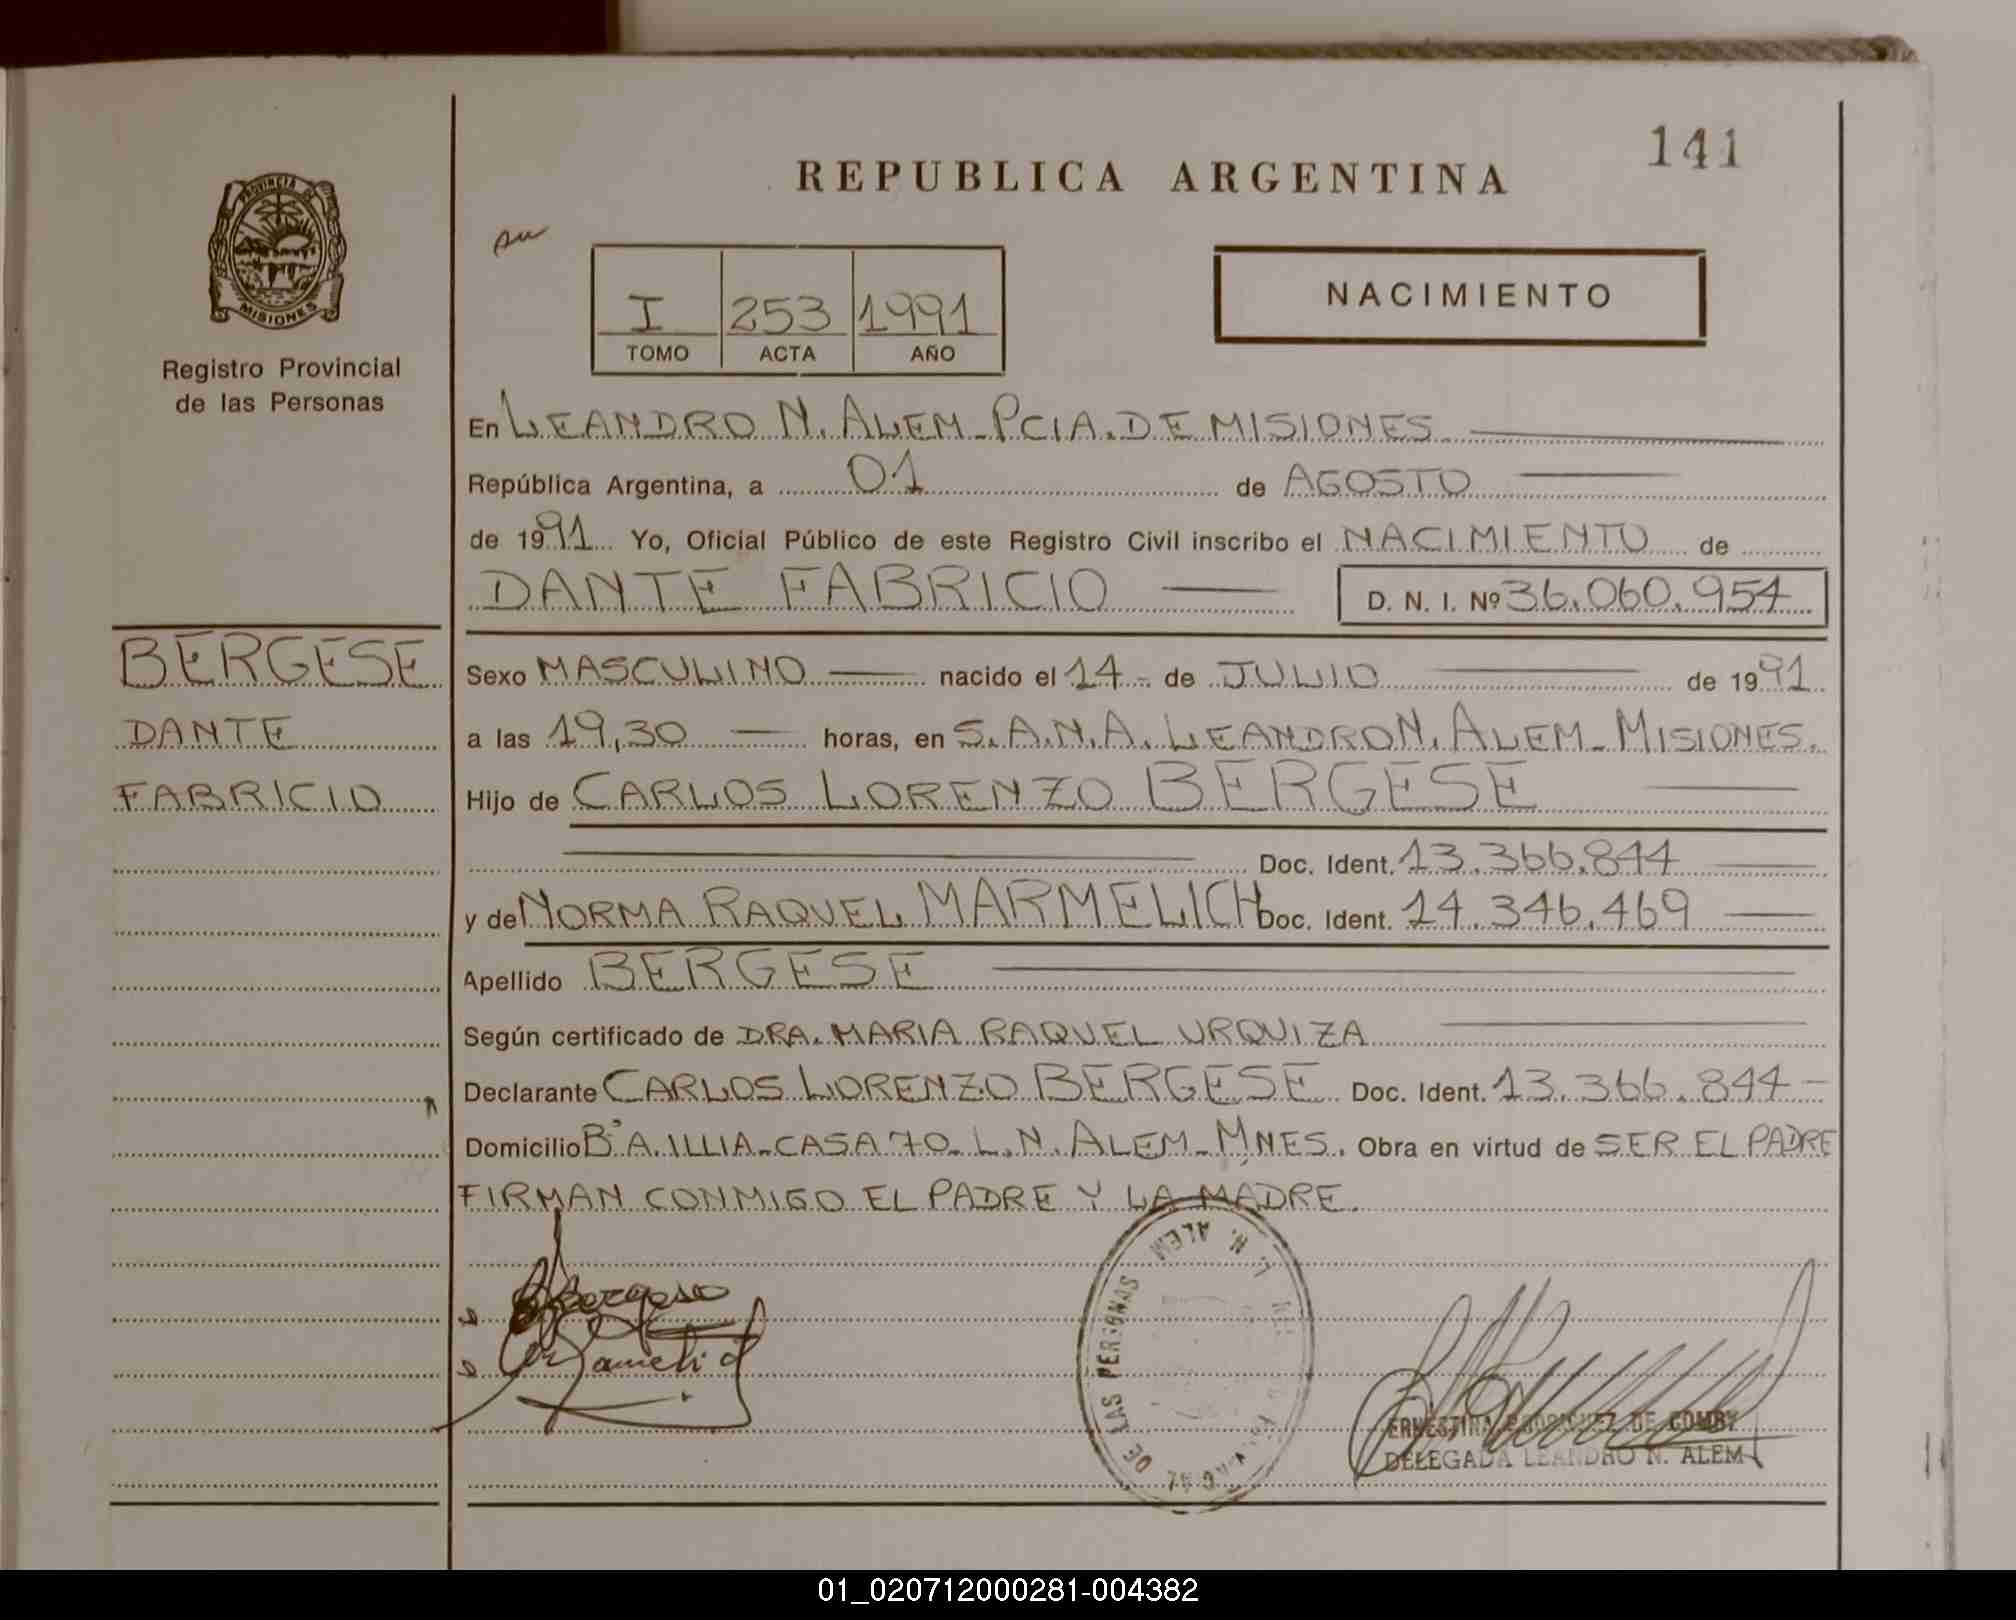 141
REPUBLICA ARGENTINA
PROVINCIA DE
MISIONES
Registro Provincial
de las Personas
NACIMIENTO
I 253 1991
TOMO ACTA AÑO
En LEANDRO N. ALEM - PCIA. DE MISIONES
República Argentina, a 01 de AGOSTO
de 1991 Yo, Oficial Público de este Registro Civil inscribo el NACIMIENTO de
DANTE FABRICIO D. N. I. Nº 36.060.954
BERGESE
DANTE
FABRICIO
Sexo MASCULINO nacido el 14 - de JULIO de 1991
a las 19,30 horas, en S.A.N.A. LEANDRO N. ALEM - MISIONES.
Hijo de CARLOS LORENZO BERGESE
Doc. Ident. 13.366.844
y de NORMA RAQUEL MARMELICH Doc. Ident. 14.346.469
Apellido BERGESE
Según certificado de DRA. MARIA RAQUEL URQUIZA
Declarante CARLOS LORENZO BERGESE Doc. Ident. 13.366.844 -
Domicilio Bº A. ILLIA - CASA 70 - L.N. ALEM - MNES. Obra en virtud de SER EL PADRE
FIRMAN CONMIGO EL PADRE Y LA MADRE.
Bergese
DE LAS PERSONAS L. N. ALEM
ERNESTINA RODRIGUEZ DE COMBY
DELEGADA LEANDRO N. ALEM
01_020712000281-004382